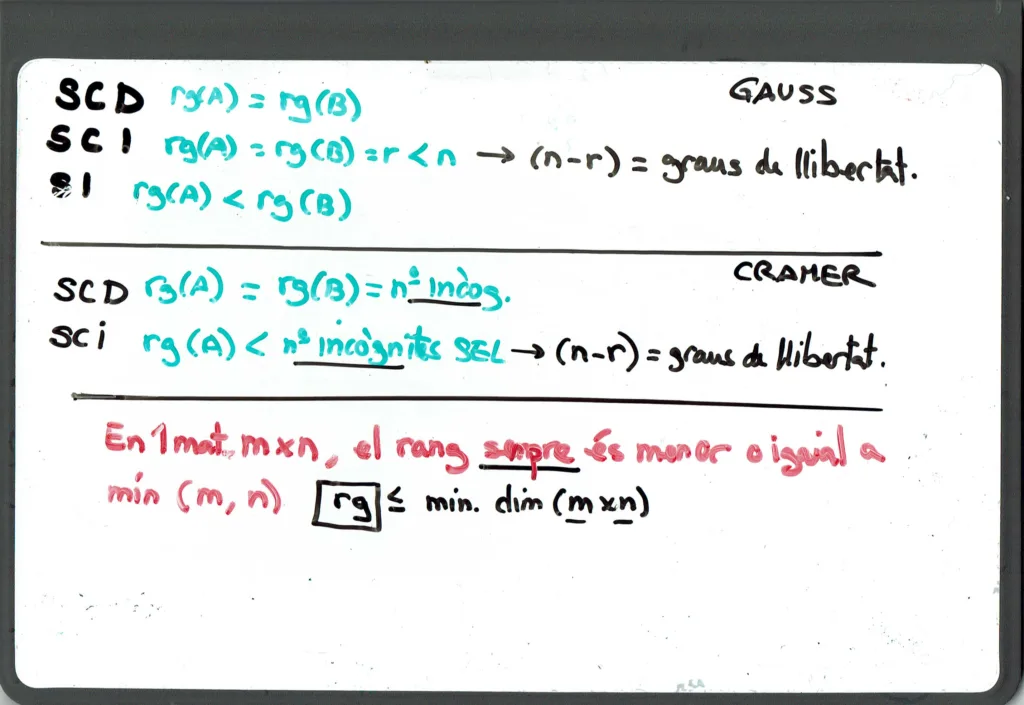 SCD rg(A) = rg(B) GAUSS
SCI rg(A) = rg(B) = r < n → (n-r) = graus de llibertat.
SI rg(A) < rg(B)
CRAMER
SCD rg(A) = rg(B) = nº incòg.
SCi rg(A) < nº incògnites SEL → (n-r) = graus de llibertat.
En 1 mat. mxn, el rang sempre és menor o igual a
mín (m, n) rg ≤ min. dim (m x n)